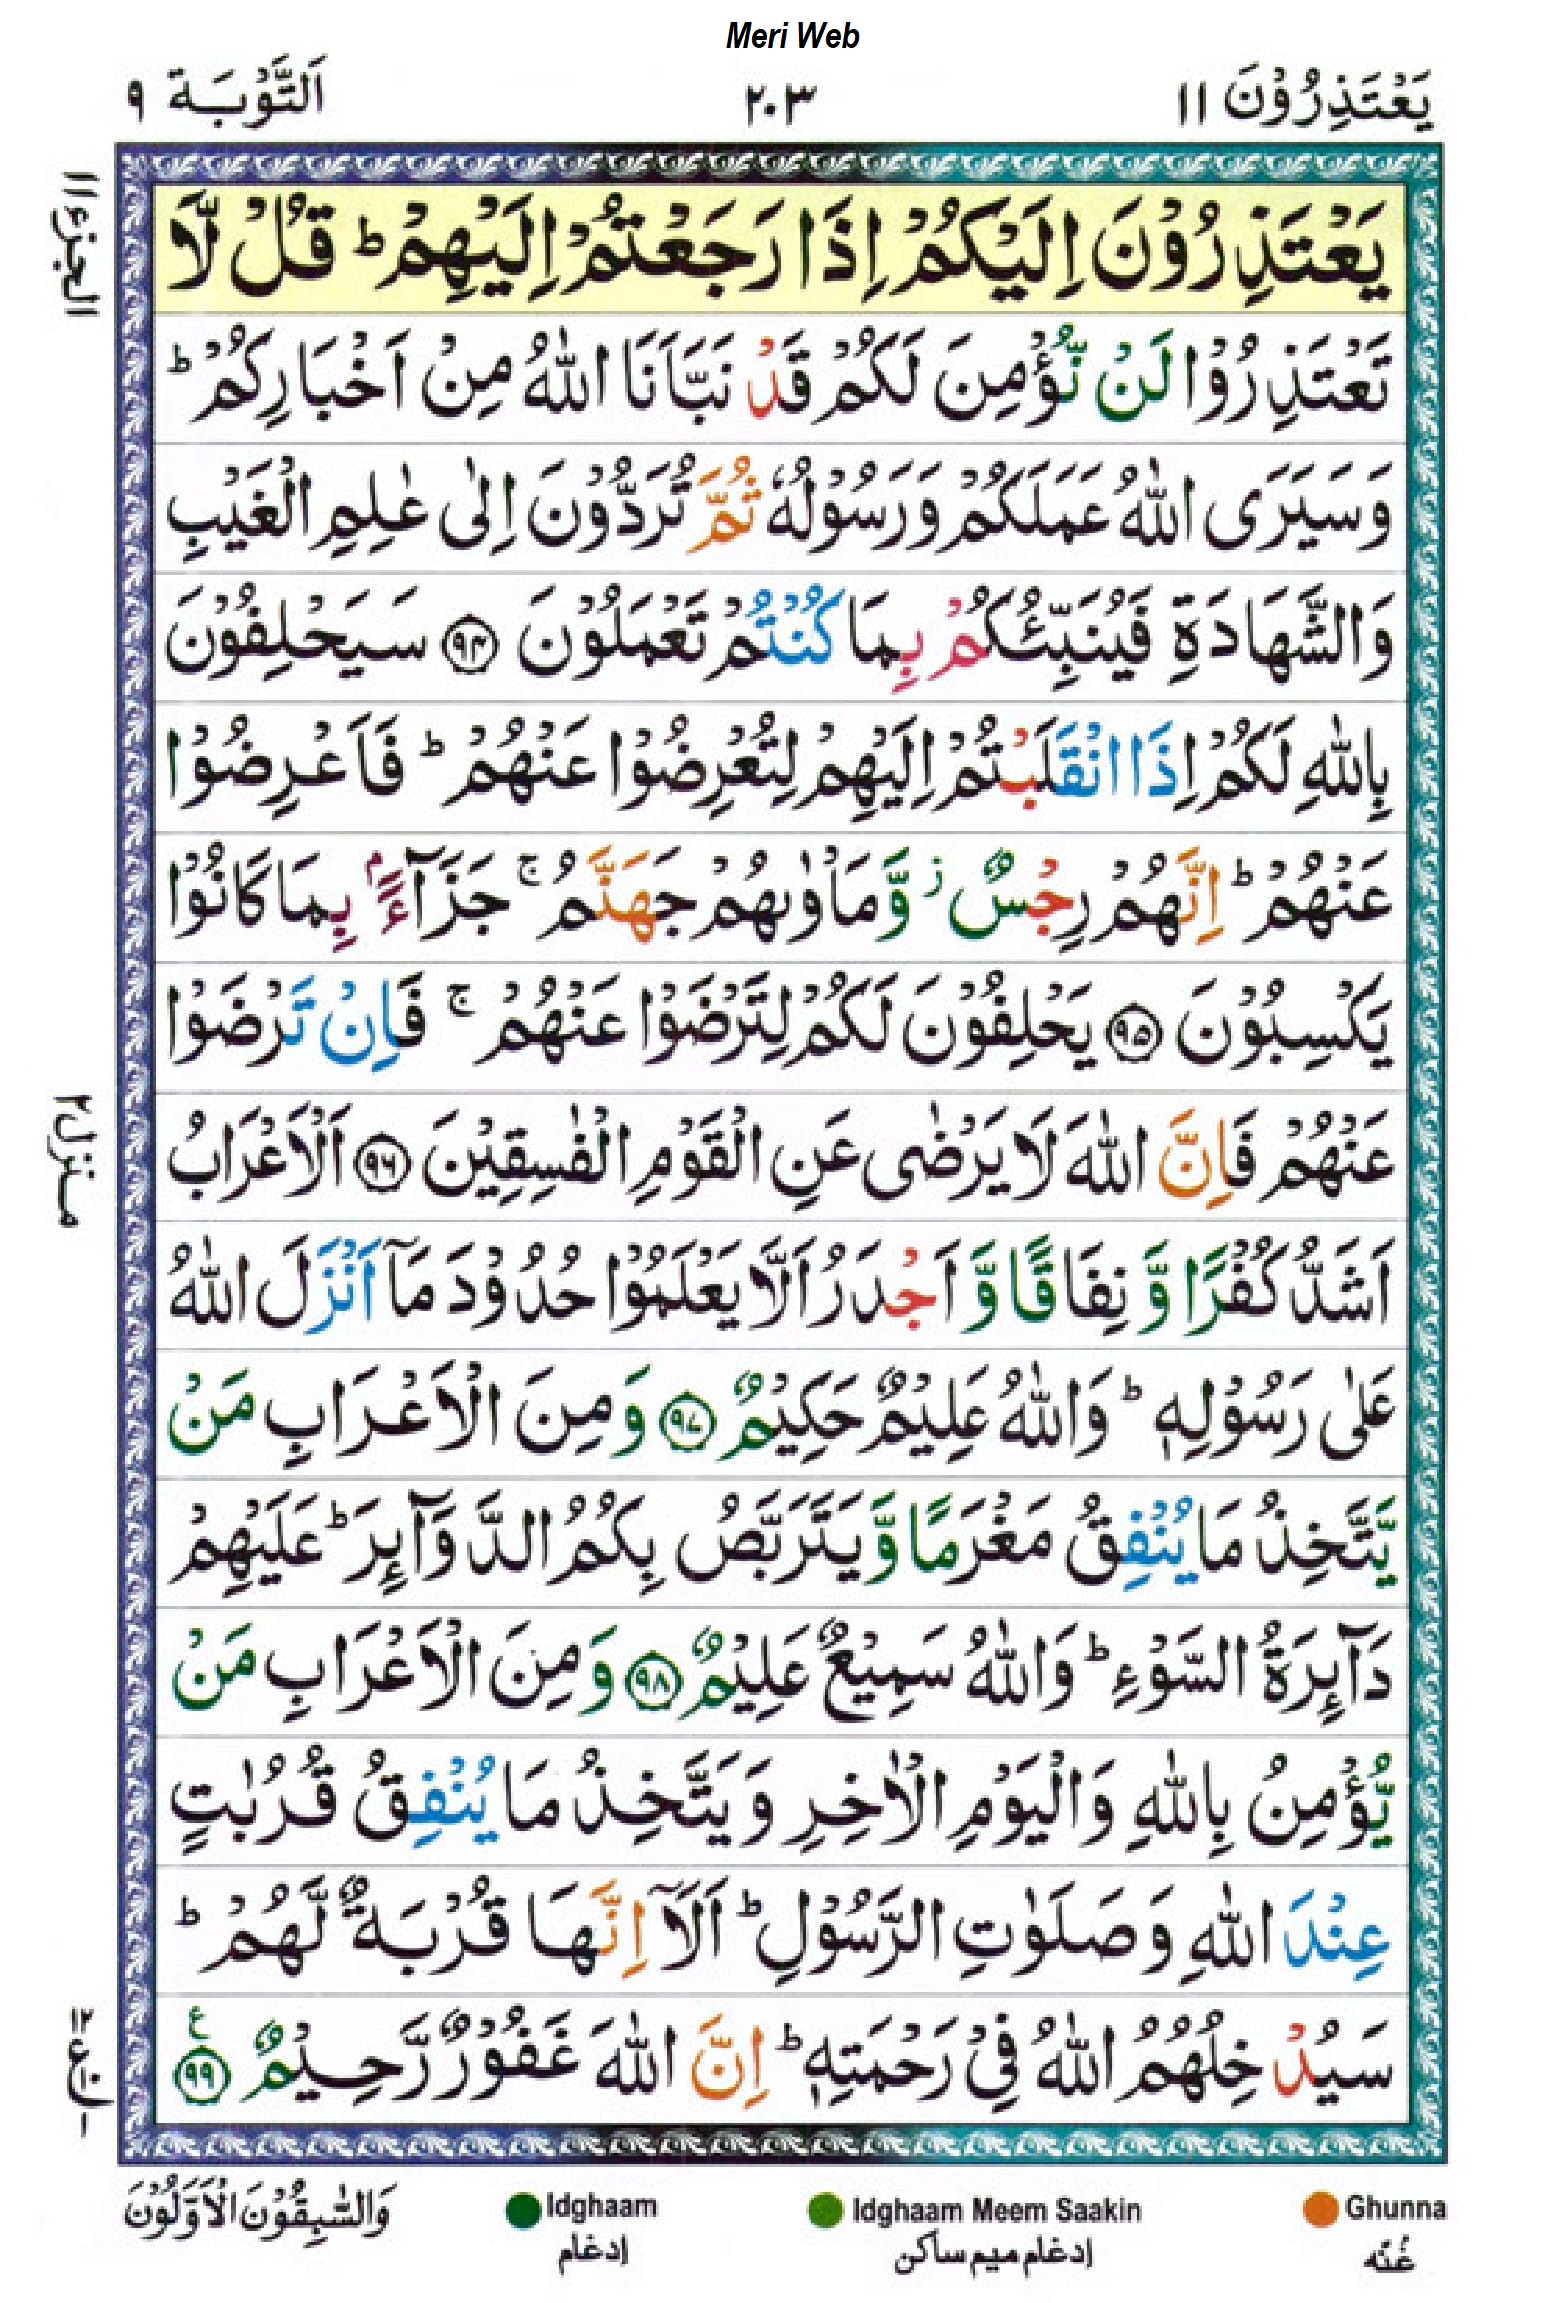 Meri Web
یَعْتَذِرُوْنَ ۱۱
۲۰۳
اَلتَّوْبَة ۹
الجزء ۱۱
یَعْتَذِرُوْنَ اِلَیْكُمْ اِذَا رَجَعْتُمْ اِلَیْهِمْ ؕ قُلْ لَّا
تَعْتَذِرُوْا لَنْ نُّؤْمِنَ لَكُمْ قَدْ نَبَّاَنَا اللّٰهُ مِنْ اَخْبَارِكُمْ ؕ
وَسَیَرَی اللّٰهُ عَمَلَكُمْ وَرَسُوْلُهٗ ثُمَّ تُرَدُّوْنَ اِلٰی عٰلِمِ الْغَیْبِ
وَالشَّهَادَةِ فَیُنَبِّئُكُمْ بِمَا كُنْتُمْ تَعْمَلُوْنَ ﴿۹۴﴾ سَیَحْلِفُوْنَ
بِاللّٰهِ لَكُمْ اِذَا انْقَلَبْتُمْ اِلَیْهِمْ لِتُعْرِضُوْا عَنْهُمْ ؕ فَاَعْرِضُوْا
عَنْهُمْ ؕ اِنَّهُمْ رِجْسٌ ۫ وَّمَاْوٰىهُمْ جَهَنَّمُ ۚ جَزَآءًۢ بِمَا كَانُوْا
یَكْسِبُوْنَ ﴿۹۵﴾ یَحْلِفُوْنَ لَكُمْ لِتَرْضَوْا عَنْهُمْ ۚ فَاِنْ تَرْضَوْا
عَنْهُمْ فَاِنَّ اللّٰهَ لَا یَرْضٰی عَنِ الْقَوْمِ الْفٰسِقِیْنَ ﴿۹۶﴾ اَلْاَعْرَابُ
منزل۲
اَشَدُّ كُفْرًا وَّ نِفَاقًا وَّ اَجْدَرُ اَلَّا یَعْلَمُوْا حُدُوْدَ مَاۤ اَنْزَلَ اللّٰهُ
عَلٰی رَسُوْلِهٖ ؕ وَاللّٰهُ عَلِیْمٌ حَكِیْمٌ ﴿۹۷﴾ وَمِنَ الْاَعْرَابِ مَنْ
یَّتَّخِذُ مَا یُنْفِقُ مَغْرَمًا وَّ یَتَرَبَّصُ بِكُمُ الدَّوَآئِرَ ؕ عَلَیْهِمْ
دَآئِرَةُ السَّوْءِ ؕ وَاللّٰهُ سَمِیْعٌ عَلِیْمٌ ﴿۹۸﴾ وَمِنَ الْاَعْرَابِ مَنْ
یُّؤْمِنُ بِاللّٰهِ وَالْیَوْمِ الْاٰخِرِ وَ یَتَّخِذُ مَا یُنْفِقُ قُرُبٰتٍ
عِنْدَ اللّٰهِ وَصَلَوٰتِ الرَّسُوْلِ ؕ اَلَاۤ اِنَّهَا قُرْبَةٌ لَّهُمْ ؕ
سَیُدْخِلُهُمُ اللّٰهُ فِیْ رَحْمَتِهٖ ؕ اِنَّ اللّٰهَ غَفُوْرٌ رَّحِیْمٌ ﴿۹۹﴾ ع
۱۲
ع
۱
وَالسّٰبِقُوْنَ الْاَوَّلُوْنَ
Idghaam
ادغام
Idghaam Meem Saakin
ادغام میم ساکن
Ghunna
غُنّه